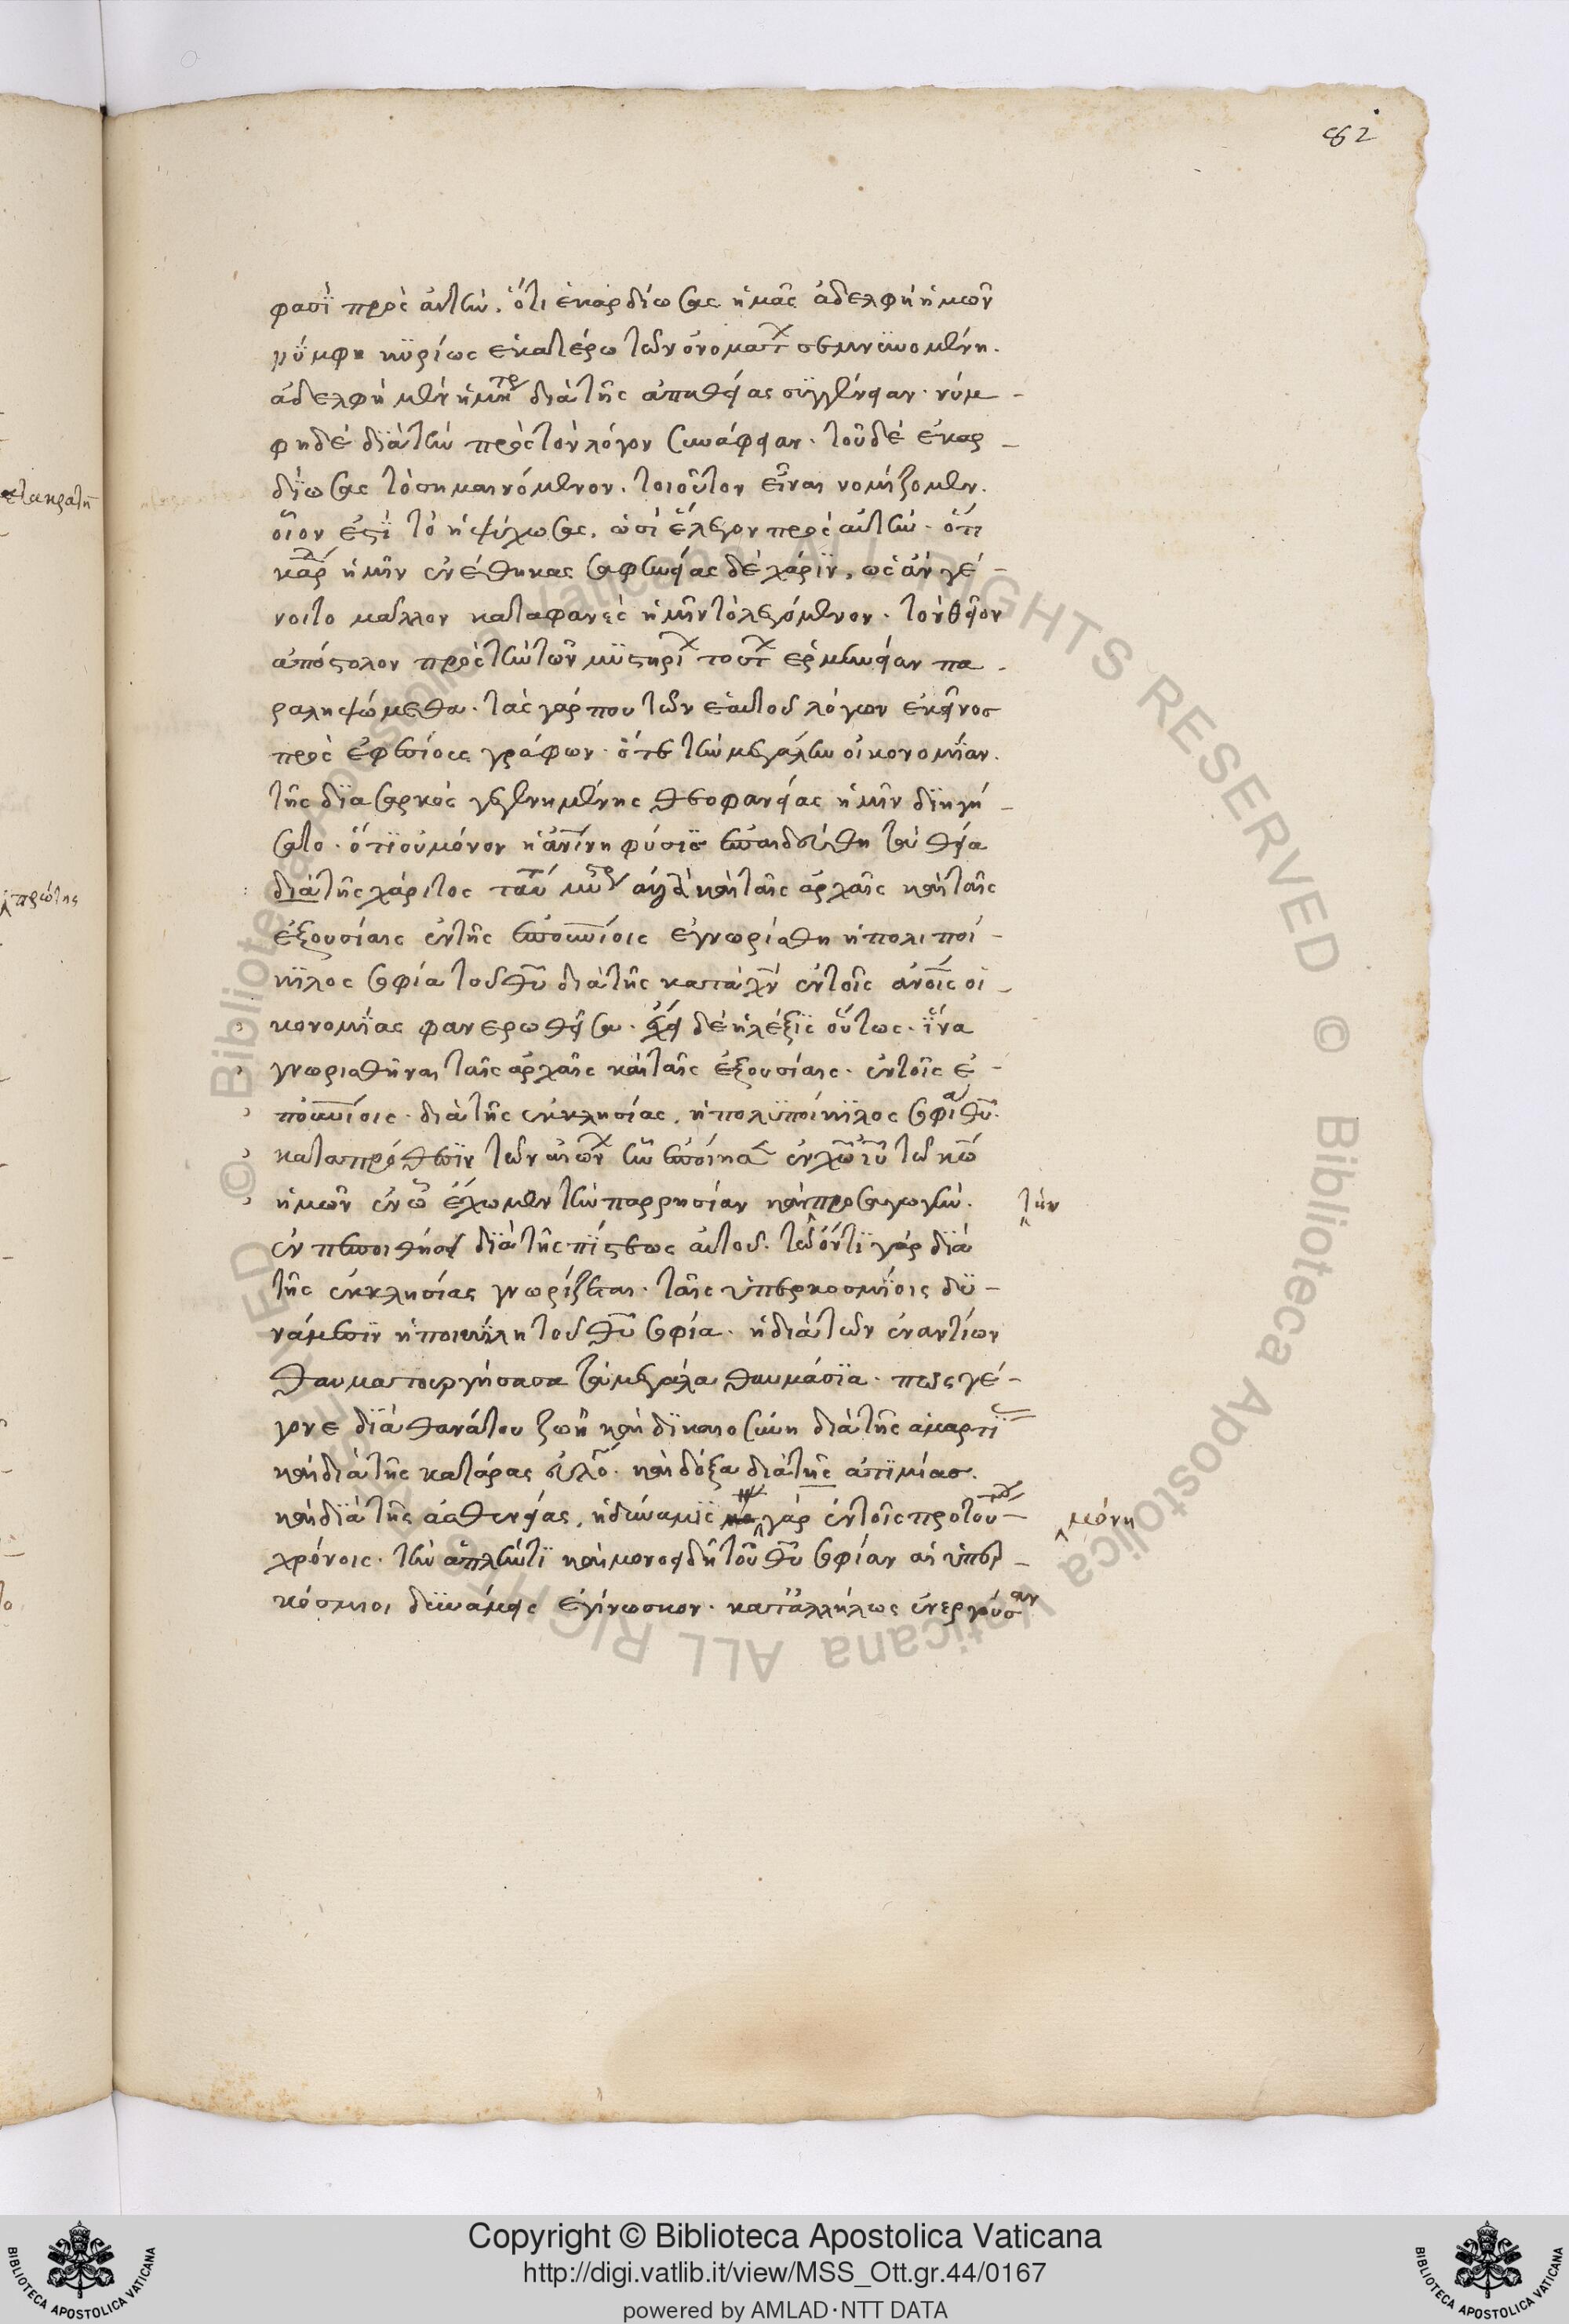 82
φασὶ πρὸς αὐτὴν. ὅτι ἐκαρδίωσας ἡμᾶς ἀδελφὴ ἡμῶν
νύμφη κυρίως ἑκατέρω τῶν ὀνομάτ σεμνυνομένη.
ἀδελφὴ μὲν ἡμετρ διὰ τῆς ἀπαθείας συγγένειαν. νύμ-
φη δὲ διὰ τὴν πρὸς τὸν λόγον συνάφειαν. τοῦ δὲ ἐκαρ-
δίωσας τὸ σημαινόμενον. τοιοῦτον εἶναι νομίζομεν.
οἷόν ἐστι τὸ ἠψύχωσας. ὡσεὶ ἔλεγον πρὸς αὐτὴν. ὅτι
καρδ ἡμῖν ἐνέθηκας σαφηνείας δὲ χάριν, ὡς ἂν γέ-
νοιτο μᾶλλον καταφανὲς ἡμῖν τὸ λεγόμενον. τὸν θεῖον
ἀπόστολον πρὸς τὴν τῶν μυστηρί τούτ ἑρμηνείαν πα-
ραληψώμεθα. τὰς γάρ που τῶν ἑαυτοῦ λόγων ἐκεῖνος
πρὸς ἐφεσίους γράφων. ὅτε τὴν μεγάλην οἰκονομίαν.
τῆς διὰ σαρκὸς γεγενημένης θεοφανείας ἡμῖν διηγή-
σατο. ὅτι οὐ μόνον ἡ ἀνίνη φύσις ἐπαιδεύθη τὰ θεῖα
διὰ τῆς χάριτος ταῦτ μυστρ ἀλλὰ καὶ ταῖς ἀρχαῖς καὶ ταῖς
ἐξουσίαις ἐν τῆς ἐπουνίοις ἐγνωρίσθη ἡ πολιποί-
κιλος σοφία τοῦ θῦ διὰ τῆς κατὰ χν ἐν τοῖς ἀνοις οἰ-
κονομίας φανερωθεῖσα. ἔχει δὲ ἡ λέξις οὕτως. ἵνα
γνωρισθῆναι ταῖς ἀρχαῖς καὶ ταῖς ἐξουσίαις. ἐν τοῖς ἐ-
πουνίοις. διὰ τῆς ἐκκλησίας. ἡ πολυποίκιλος σοφία θῦ.
κατα πρόθεσιν τῶν αἰών ἣν ἐποίησ ἐν χω ιυ τῶ κω
ἡμῶν ἐν ὧ ἔχωμεν τὴν παρρησίαν καὶ προσαγωγὴν. τὴν
ἐν πεποιθήσει διὰ τῆς πίστεως αὐτοῦ. τῶ ὄντι γὰρ διὰ
τῆς ἐκκλησίας γνωρίζεται. ταῖς ὑπερκοσμίοις δυ-
νάμεσιν ἡ ποικίλη τοῦ θῦ σοφία. ἡ διὰ τῶν ἐναντίων
θαυματουργήσασα τὰ μεγάλα θαυμάσια. πῶς γέ-
γονε διὰ θανάτου ζωὴ καὶ δικαιοσύνη διὰ τῆς ἁμαρτί
καὶ διὰ τῆς κατάρας εὐλο. καὶ δόξα διὰ τῆς ἀτιμίας.
καὶ διὰ τῆς ἀσθενείας, ἡ δύναμις γὰρ ἐν τοῖς πρὸ τού- μόνη
χρόνοις. τὴν ἁπλήν τι καὶ μονοειδῆ τοῦ θῦ σοφίαν αἱ ὑπερ-
κόσμιοι δυνάμεις ἐγίνωσκον. καταλλήλως ἐνεργούσαν
πρώτης
Copyright © Biblioteca Apostolica Vaticana
http://digi.vatlib.it/view/MSS_Ott.gr.44/0167
powered by AMLAD·NTT DATA
BIBLIOTECA APOSTOLICA VATICANA
BIBLIOTECA APOSTOLICA VATICANA
© Biblioteca Apostolica Vaticana ALL RIGHTS RESERVED © Biblioteca Apostolica Vaticana ALL RIGHTS RESERVED